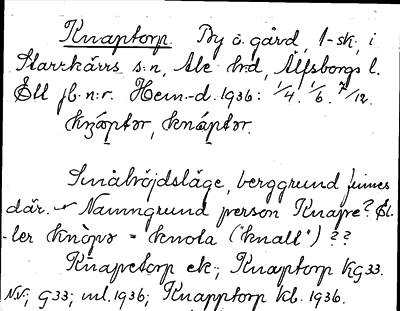 Knaptorp. By o. gård, 1-sk, i
Starrkärrs s:n, Ale hd, Älfsborgs l.
Ett jb.n:r. Hem.-d. 1936: 1/4. 1/6. 7/12.
knáptər.
Småhöjdsläge, berggrund finnes
där. Namngrund person Knape? El-
ler = knola ("knall") ??
Knapetorp ek.; Knaptorp KG33.
G33; ml. 1936; Knapptorp kb. 1936.